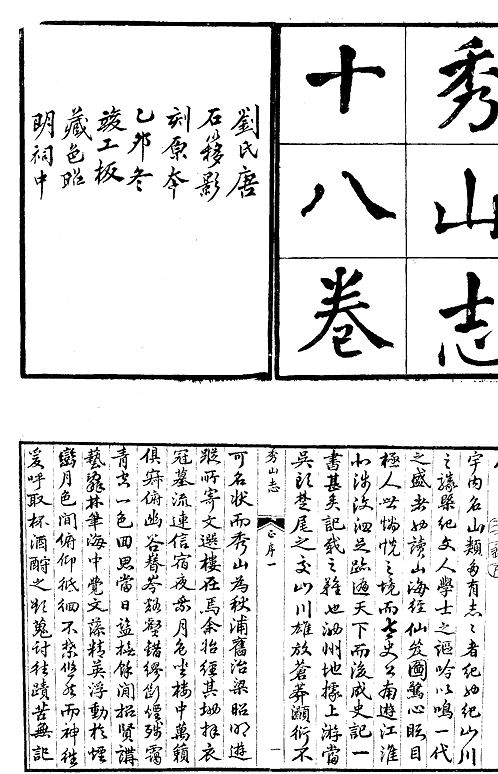 秀山志
十八卷
劉氏唐
石簃影
刻原本
乙卯冬
竣工板
藏邑昭
明祠中
宇内名山類多有志志者紀也紀山川
之槩紀文人學士之謳吟以鳴一代
之盛者也讀山海經仙笈圖心眙目
極人世惝怳之境而太史公南遊江淮
北涉汶泗足跡遍天下而後成史記一
書甚矣記載之難也池州地據上游當
吳頭楚尾之交山川雄放蒼莽灝衍不
秀山志 序一
可名狀而秀山為秋浦舊治梁昭明遊
蹤所寄文選樓在焉余經其地拜衣
冠墓流連信宿夜月色坐樓中萬籟
俱寂俯幽谷
青一色回思當日監撫餘閒招賢講
藝辭林筆海中覺文藻精英浮動於煙
巒月色間俯仰低徊不禁悠然而神往
爰呼取杯酒酹之蒐討往蹟苦無記